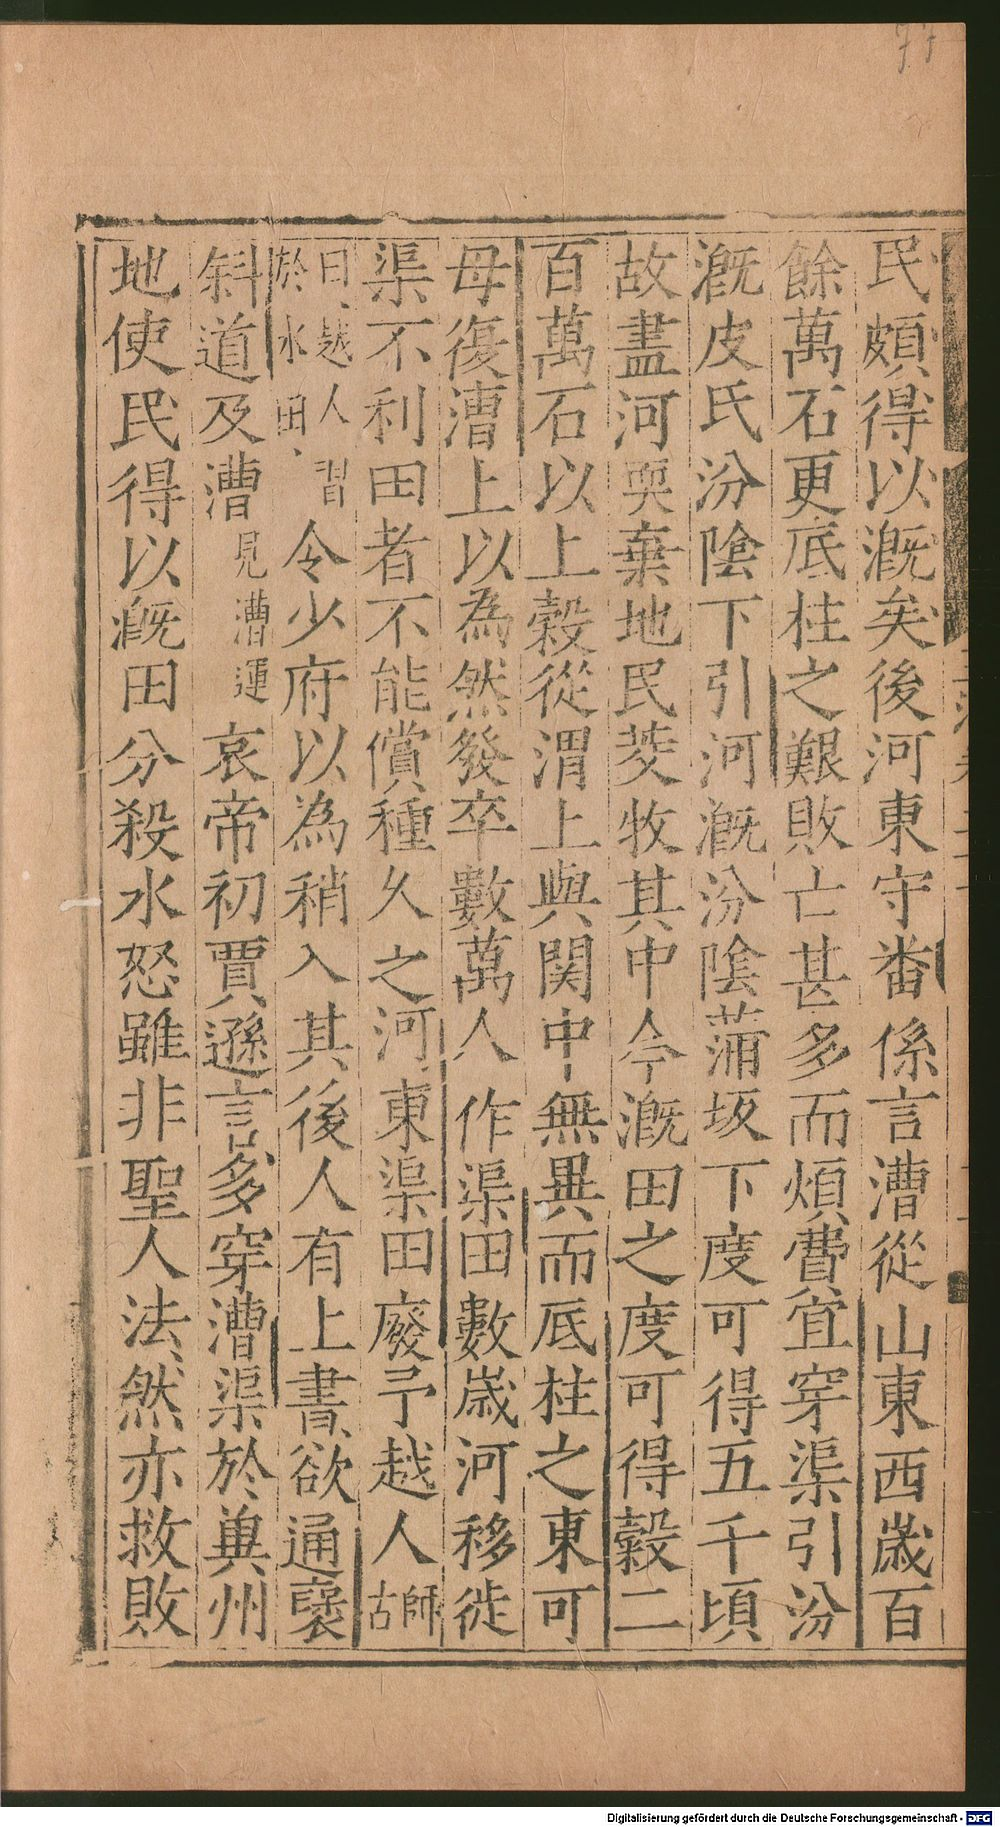 民頗得以漑矣後河東守番係言漕從山東西歲百
餘萬石更底柱之艱敗亡甚多而煩費宜穿渠引汾
漑皮氏汾陰下引河漑汾陰蒲坂下度可得五千頃
故盡河耎棄地民茭牧其中今漑田之度可得穀二
百萬石以上穀從渭上與関中無異而底柱之東可
毋復漕上以為然發卒數萬人作渠田數歲河移徙
渠不利田者不能償種久之河東渠田廢予越人師古
曰越人習於水田令少府以為稍入其後人有上書欲通襃
斜道及漕見漕運哀帝初賈遜言多穿漕渠於兾州
地使民得以漑田分殺水怒雖非聖人法然亦救敗
Digitalisierung gefördert durch die Deutsche Forschungsgemeinschaft - DFG